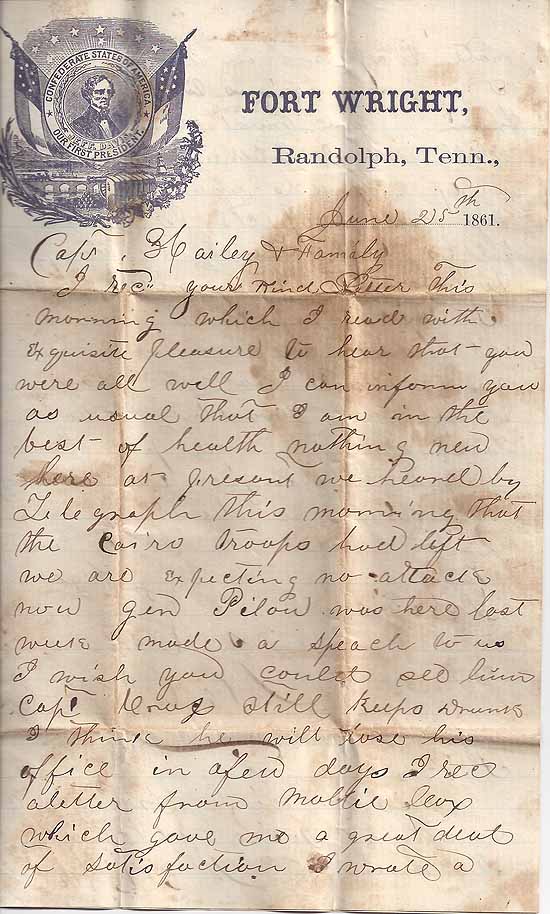 CONFEDERATE STATES OF AMERICA
JEFF. DAVIS
OUR FIRST PRESIDENT.
FORT WRIGHT,
Randolph, Tenn.,
June 25th 1861.
Capt. Hailey & Family
I recd your kind Letter This
morning which I read with
exquisite pleasure to hear that you
were all well I can inform you
as usual that I am in the
best of health nothing new
here at present we heard by
Telegraph this morning that
the Cairo troops had left
we are expecting no attack
now gen Pilow was here last
week made a speach to us
I wish you could see him
Capt still keeps drunk
I think he will lose his
office in afew days I rec
aletter from Mollie Cox
which gave me a great deal
of satisfaction I wrote a